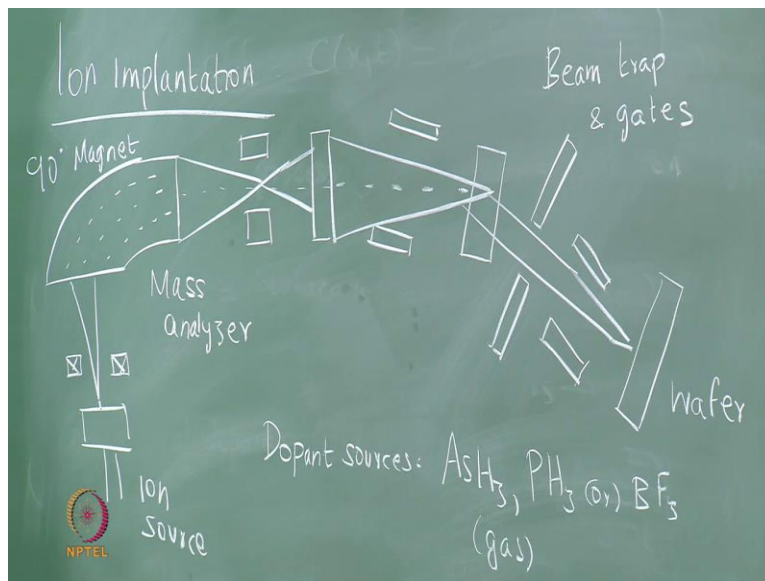 Ion Implantation
Beam trap
& gates
90° Magnet
Mass
analyzer
Wafer
Dopant sources: AsH₃, PH₃ (or) BF₃
(gas)
Ion
source
NPTEL